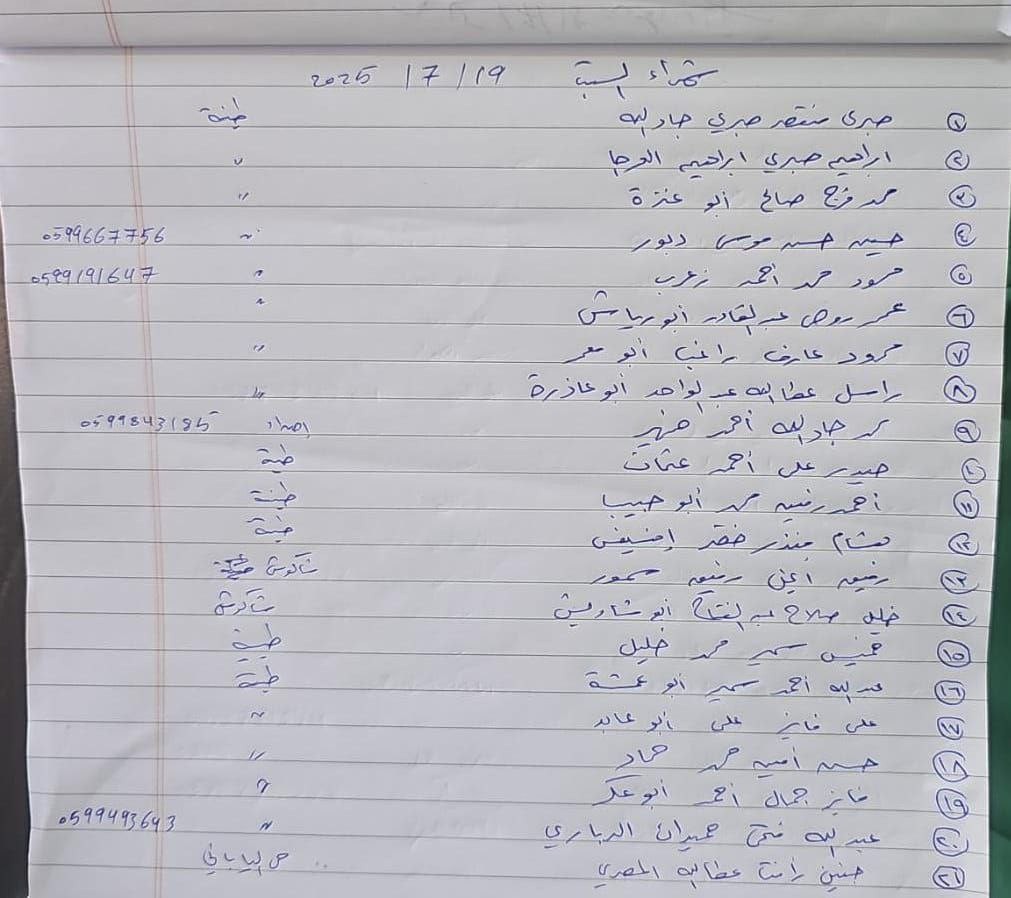 شهداء السبت 19 / 7 / 2025
١ صبري منتصر صبري جاد الله طينة
٢ ابراهيم صبري ابراهيم الوجا "
٣ محمد فرج صالح أبو عنزة "
٤ حسين حسن موسى دبور " 0599667756
٥ محمود محمد أحمد زعرب " 0599191647
٦ عمر روحي عبد القادر أبو رياش "
٧ محمود عارف راغب أبو معمر "
٨ راسل عطا الله عبد الواحد أبو عاذرة "
٩ محمد جاد الله أحمد ضهير إمداد 0599843185
١٠ حيدر علي أحمد عثمان طينة
١١ أحمد رفيق محمد أبو حبيب طينة
١٢ هشام منذر خضر طينة
١٣ رفيق رفيق شاكوش
١٤ خليل صلاح عبد الفتاح أبو شاويش شاكوش
١٥ خميس سمير محمد خليل طينة
١٦ عبد الله أحمد سمير أبو عمشة طينة
١٧ علي فايز علي أبو عابد "
١٨ حسن أمين محمد حماد "
١٩ فايز جمال أحمد أبو عكر "
٢٠ عبد الله فتحي حميدان الرباري " 0599493643
٢١ حنين رأفت عطا الله المصري ص الياباني